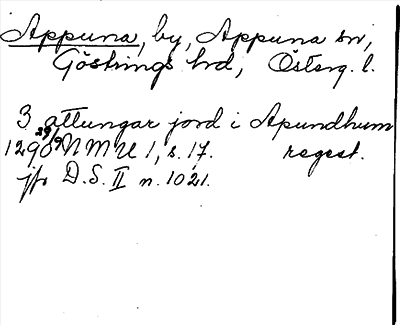 Appuna, by, Appuna sn,
Göstrings hd, Österg. l.
3 attungar jord i Apundhum
1290 29/9 NMU 1, s. 17. regest.
jfr D.S. II n. 1021.